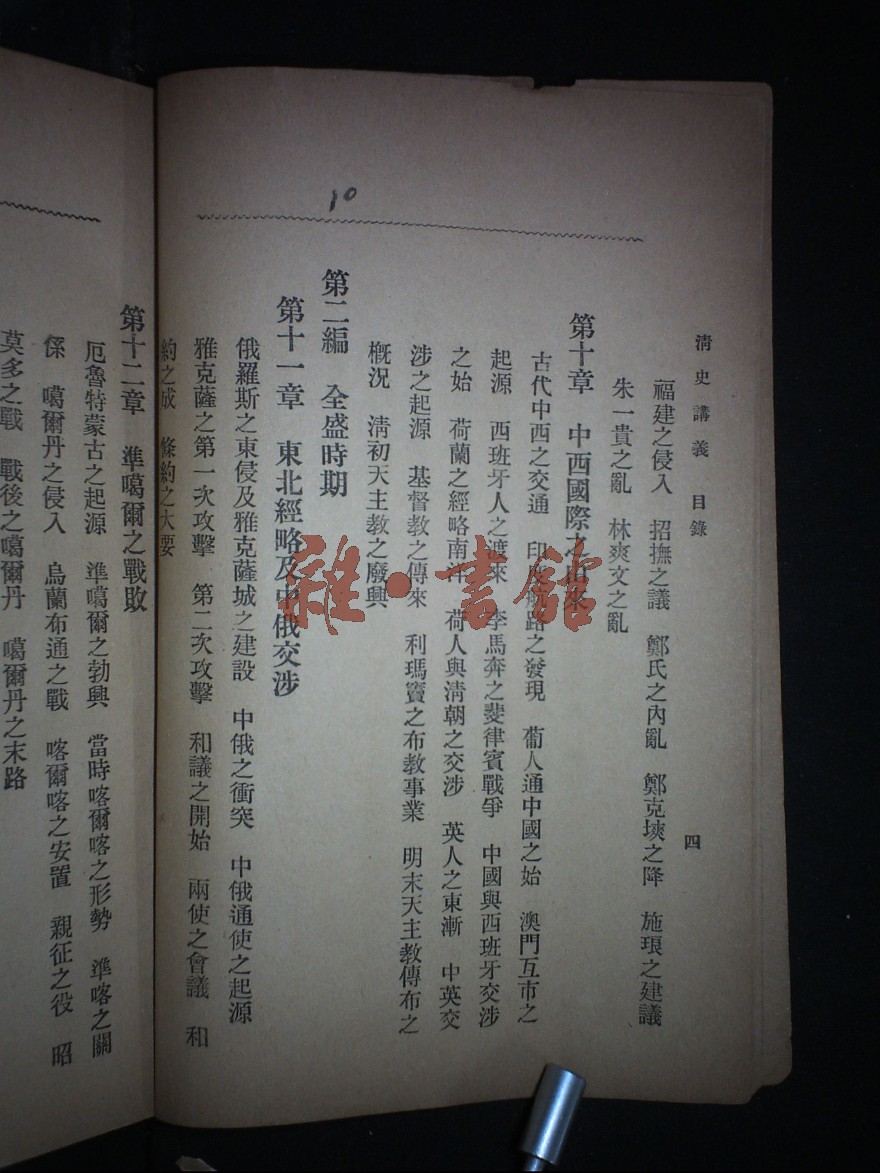 10
清史講義 目錄 四
福建之侵入 招撫之議 鄭氏之內亂 鄭克塽之降 施琅之建議
朱一貴之亂 林爽文之亂
第十章 中西國際之由來
古代中西之交通 印度航路之發現 葡人通中國之始 澳門互市之
起源 西班牙人之渡來 李馬奔之斐律賓戰爭 中國與西班牙交涉
之始 荷蘭之經略南洋 荷人與清朝之交涉 英人之東漸 中英交
涉之起源 基督教之傳來 利瑪竇之布教事業 明末天主教傳布之
概況 清初天主教之廢興
第二編 全盛時期
第十一章 東北經略及中俄交涉
俄羅斯之東侵及雅克薩城之建設 中俄之衝突 中俄通使之起源
雅克薩之第一次攻擊 第二次攻擊 和議之開始 兩使之會議 和
約之成 條約之大要
第十二章 準噶爾之戰敗
厄魯特蒙古之起源 準噶爾之勃興 當時喀爾喀之形勢 準喀之關
係 噶爾丹之侵入 烏蘭布通之戰 喀爾喀之安置 親征之役 昭
莫多之戰 戰後之噶爾丹 噶爾丹之末路
雜·書館